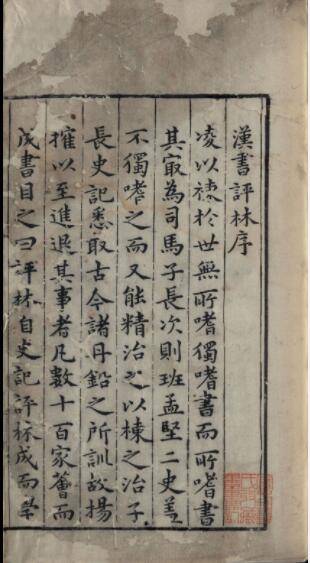 漢書評林序
凌以棟於世無所嗜獨嗜書而所嗜書
其冣為司馬子長次則班孟堅二史盖
不獨嗜之而又能精治之以棟之治子
長史記悉取古今諸丹鉛之所訓故揚
搉以至進退其事者凡數十百家薈而
成書目之曰評林自史記評林成而